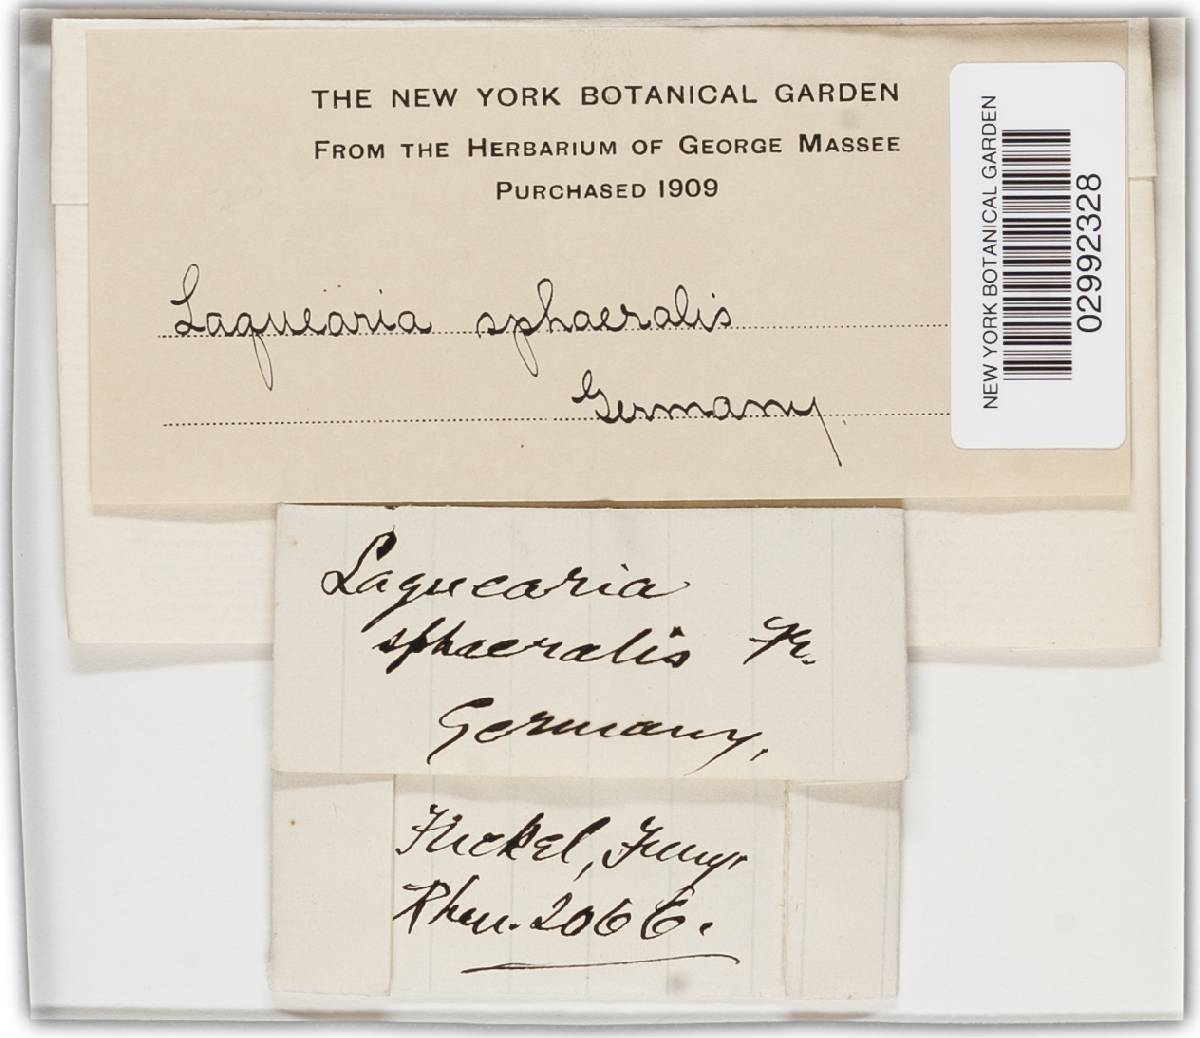 THE NEW YORK BOTANICAL GARDEN
FROM THE HERBARIUM OF GEORGE MASSEE
PURCHASED 1909
NEW YORK BOTANICAL GARDEN
02992328
Laquearia sphaeralis
Germany.
Laquearia
sphaeralis Fr.
Germany,
Fuckel, Fung.
Rhen. 2066.